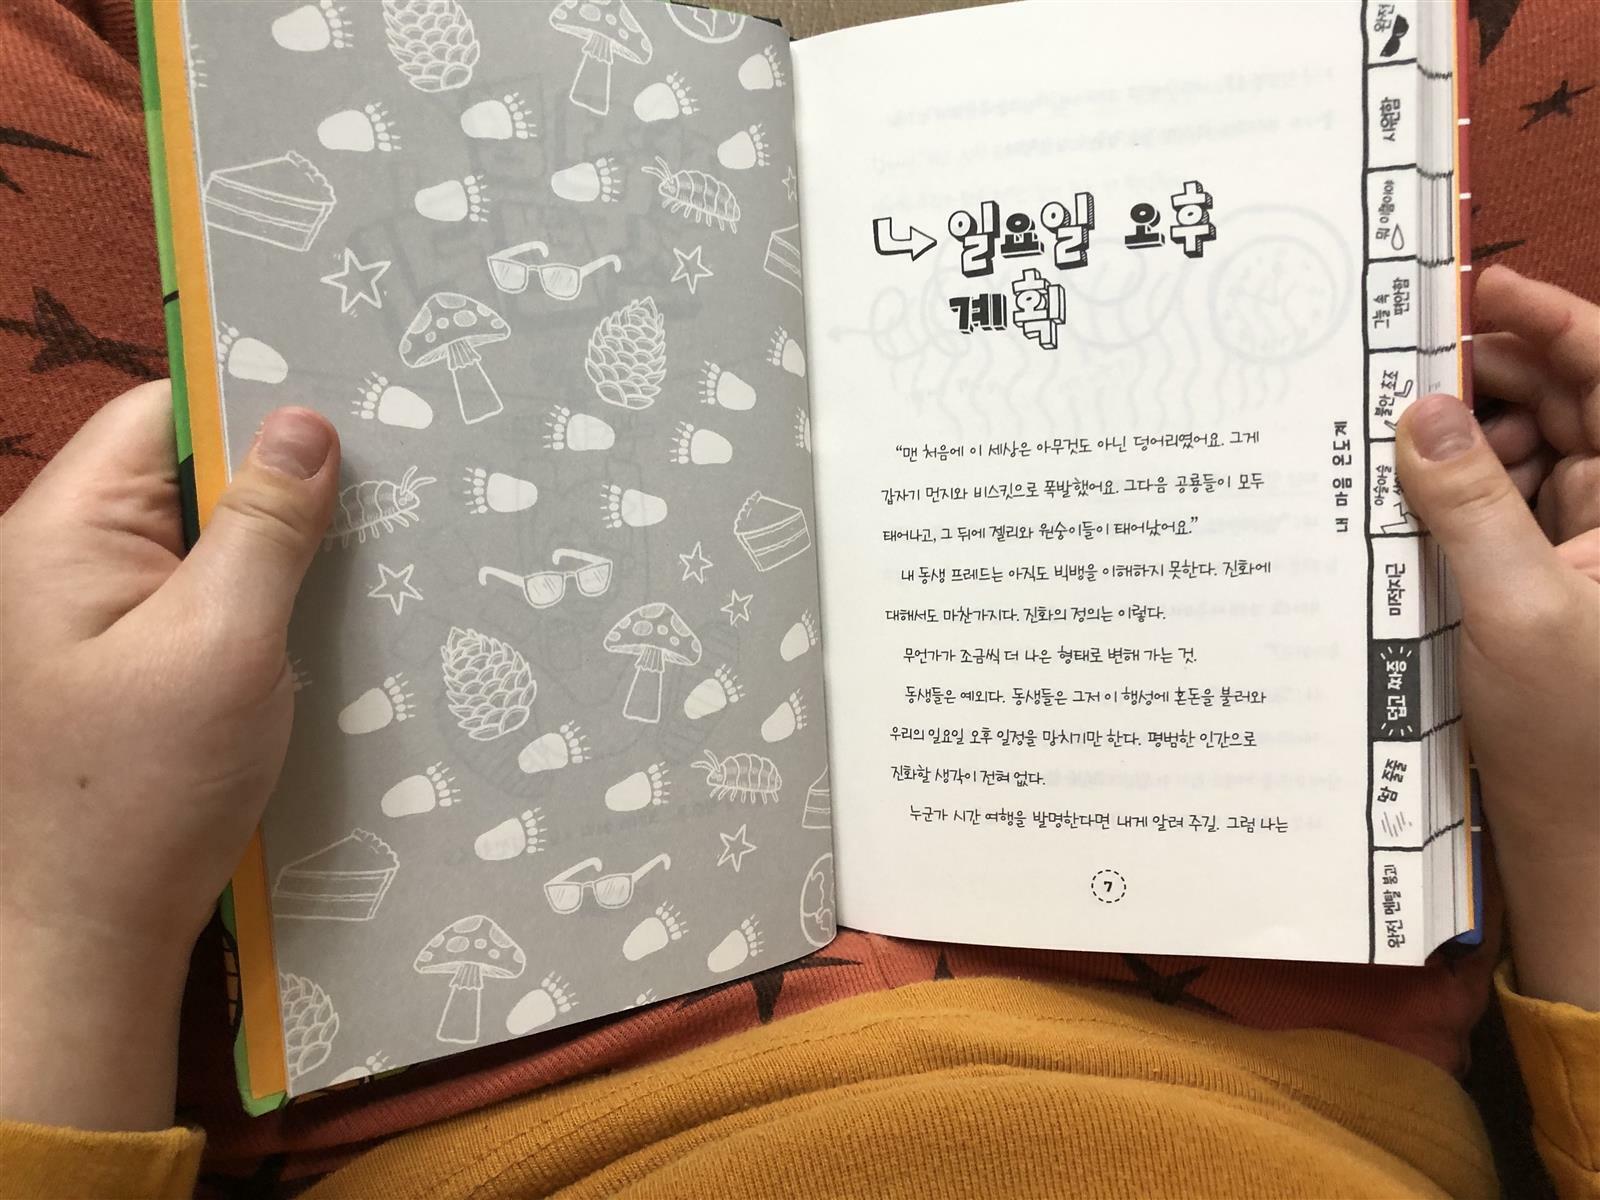 일요일 오후
계획
“맨 처음에 이 세상은 아무것도 아닌 덩어리였어요. 그게
갑자기 먼지와 비스킷으로 폭발했어요. 그다음 공룡들이 모두
태어나고, 그 뒤에 젤리와 원숭이들이 태어났어요.”
내 동생 프레드는 아직도 빅뱅을 이해하지 못한다. 진화에
대해서도 마찬가지다. 진화의 정의는 이렇다.
무언가가 조금씩 더 나은 형태로 변해 가는 것.
동생들은 예외다. 동생들은 그저 이 행성에 혼돈을 불러와
우리의 일요일 오후 일정을 망치기만 한다. 평범한 인간으로
진화할 생각이 전혀 없다.
누군가 시간 여행을 발명한다면 내게 알려 주길. 그럼 나는
7
내 마음 온도계
완전
시원함
뭐 이쯤이야
그늘 속
편안함
불안 초조
아슬아슬
미적지근
덥고 짜증
땀 줄줄
완전 멘탈 붕괴